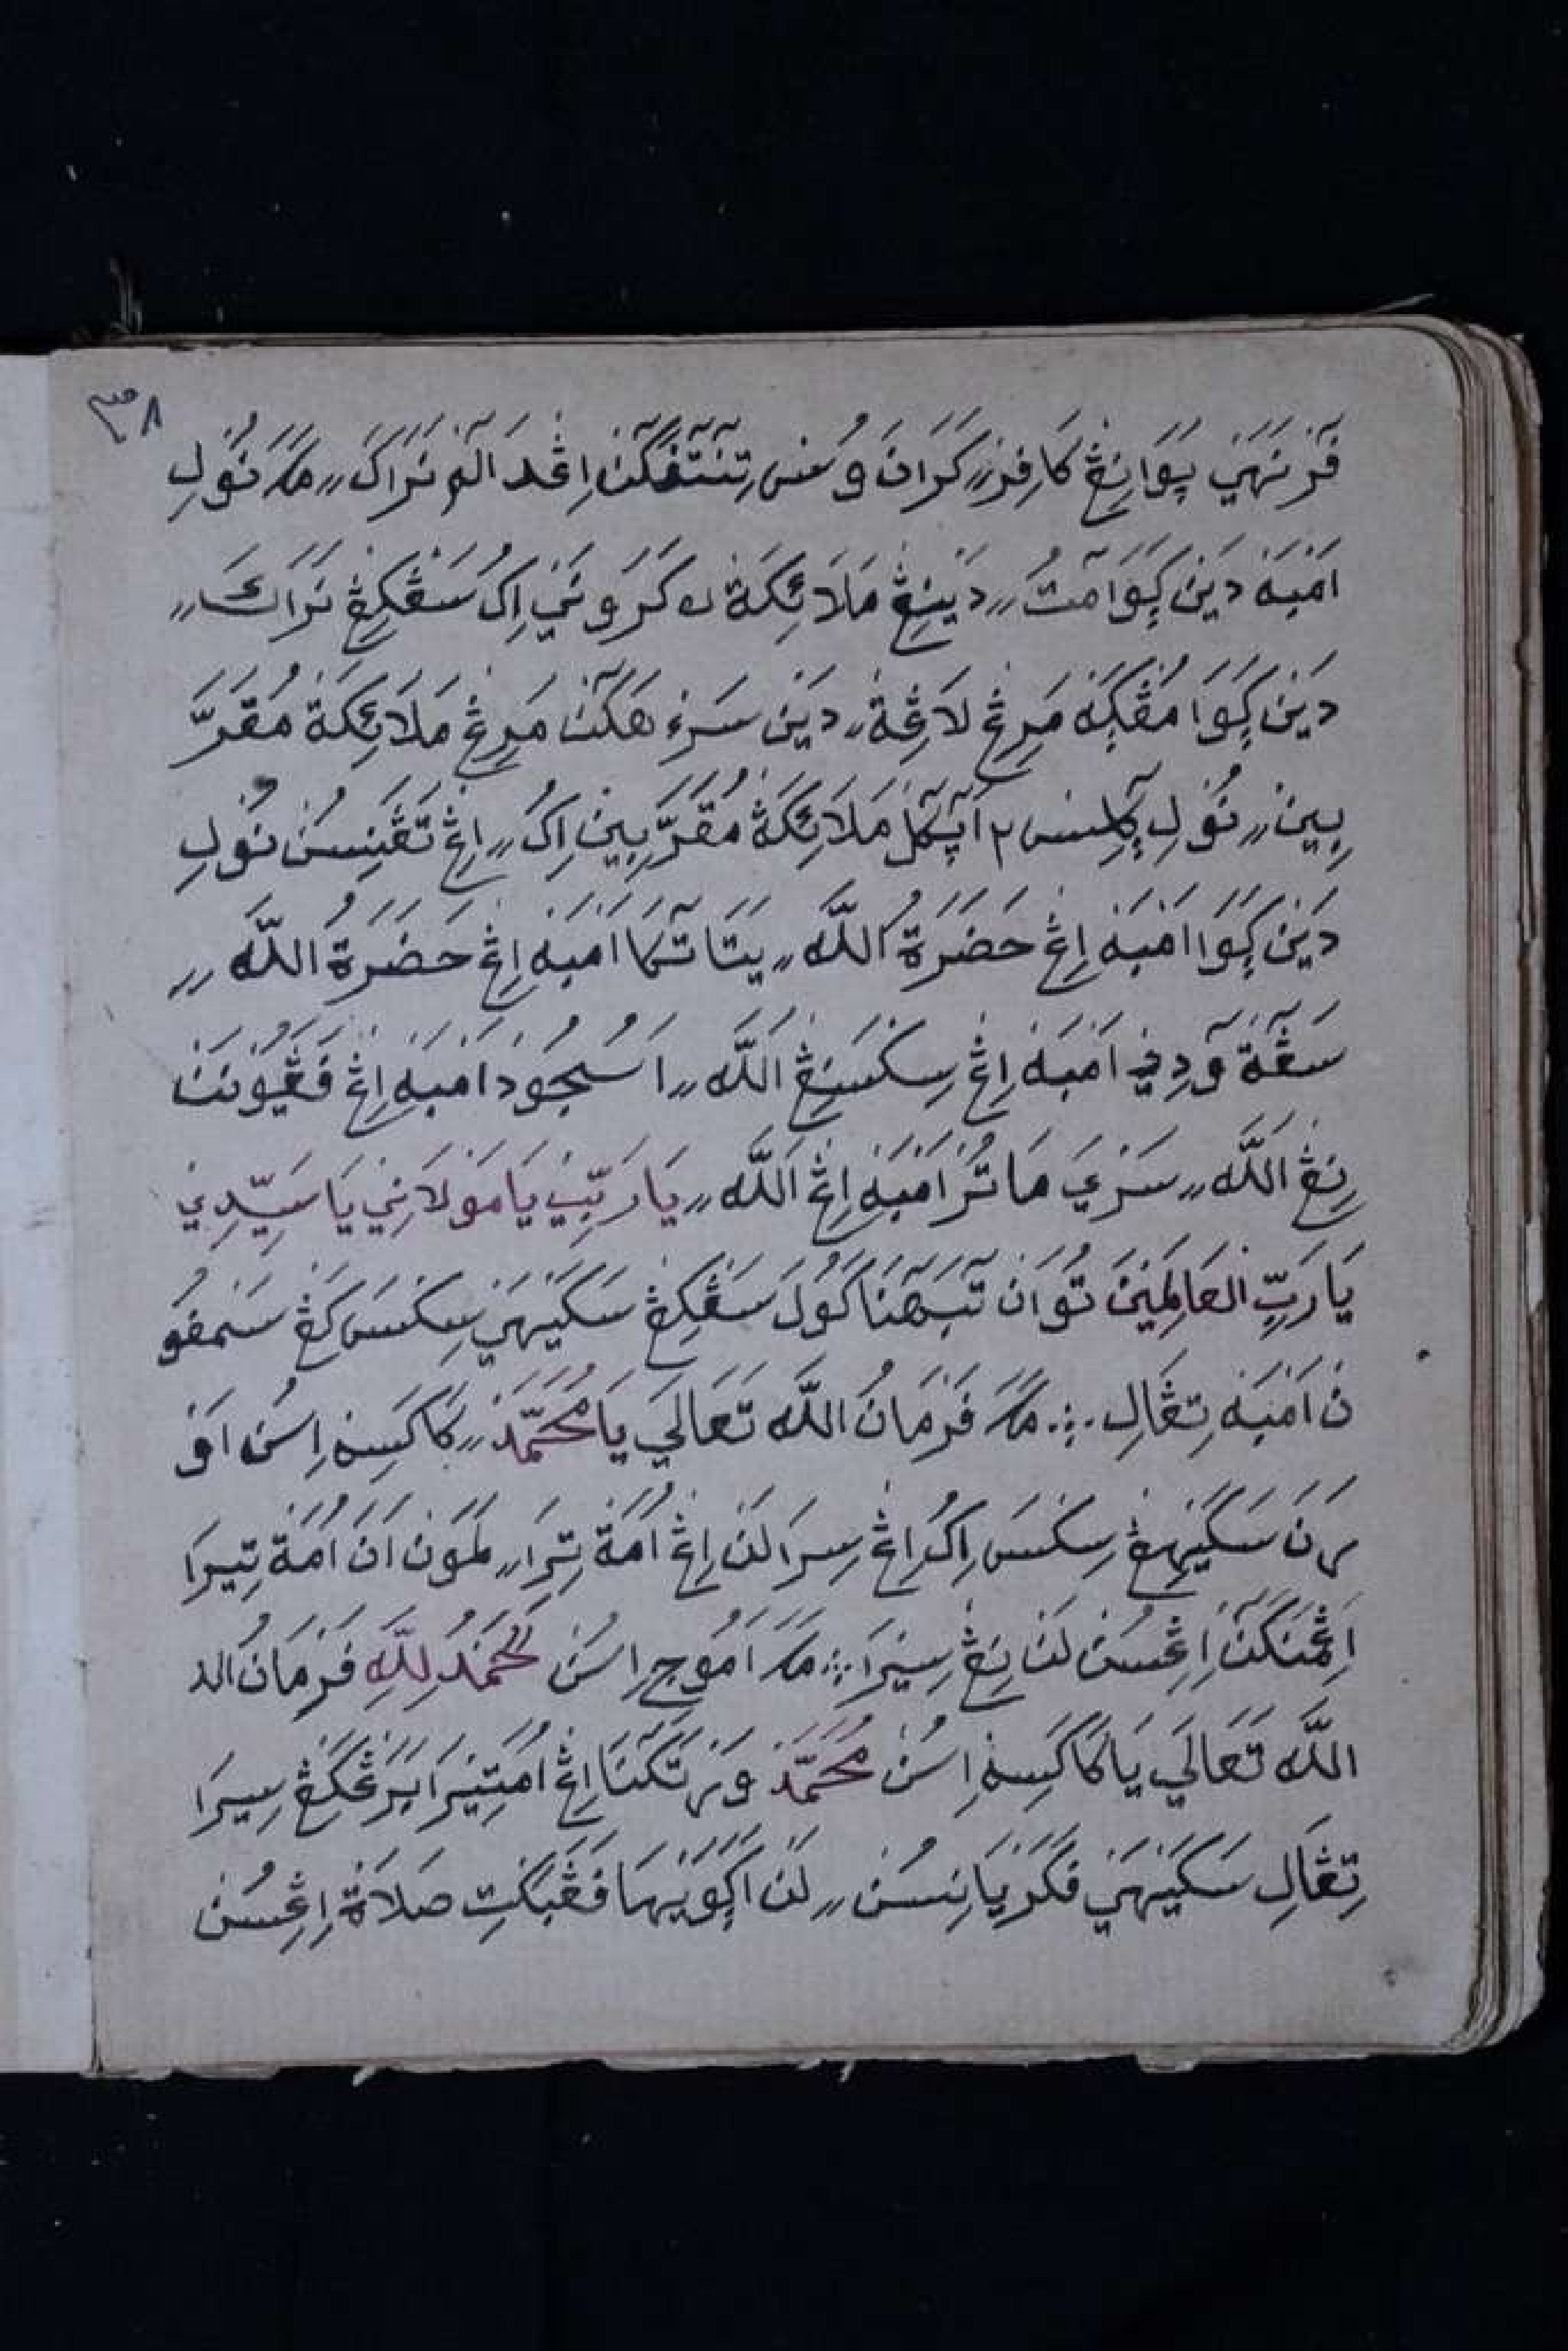 ٣٨
فَرْنَهَيْ پُوَانِڠْ كَافِرْ كَرَانَ وُسْ تِنْتَفْكَنْ اِڠْدَالَمْ نَرَاكَ مَكَ نُوْلِ
اَمْبَهْ دَيْنْ بَكْوَا مٓتُ دَيْنِڠْ مَلَائِكَةْ كَرَوَنَيْ اِكُ سَڠْكِڠْ نَرَاكَ
دَيْنْ بَكْوَا مُڠْكَهْ مَرِڠْ لَاڠِةْ دَيْنْ سَرَهَكَنْ مَرِڠْ مَلَائِكَةْ مُقَرَّ
بِيْنْ نُوْلِ مَلَائِكَةْ مُقَرَّبِيْنْ اِكُ اِڠْ تَڠَنِسُنْ نُوْلِ
دَيْنْ بَكْوَا اَمْبَهْ اِڠْ حَضَرَةُ اللّٰه يَتَا تٓكَا اَمْبَهْ اِڠْ حَضَرَةُ اللّٰه
سَڠَةْ وٓدِيْ اَمْبَهْ اِڠْ سِكْسَنِڠْ اَللّٰه اَسُجُوْدْ اَمْبَهْ اِڠْ فَڠَيُوْنَنْ
نِڠْ اَللّٰه سَرْيَ مَاتُرْ اَمْبَهْ اِڠْ اَللّٰه يَارَبِّيْ يَا مَوْلَانِيْ يَا سَيِّدِيْ
يَارَبِّ الْعَالَمِيْنَ تُوَانْ تٓبَهْنَا كَوُلَ سَڠْكِڠْ سَكَيْهَيْ سِكْسَ كَڠْ سَمْفُو
نْ اَمْبَهْ تِڠَالِ مَكَ فَرْمَانُ اللّٰه تَعَالَى يَا مُحَمَّدْ كَاكَسِهْ اِسُنْ اَوْ
رَنَ سَكَيْهِڠْ سِكْسَ اِكُ اِڠْ سِرَا لَنْ اِڠْ اُمَةْ تِرَا لَمَوْنْ اَنَ اُمَةْ تِيْرَا
اَڠِمَنَكَنْ اِڠْسُنْ لَنْ نِڠْ سِيْرَا مَكَ اَمُوْجِ اِسُنْ لْحَمْدُ لِلّٰهِ فَرْمَانُ الله
اللّٰه تَعَالَى يَا كَاكَسِهْ اِسُنْ مُحَمَّدْ وَرْتَكَنَا اِڠْ اُمَتِيْرَا بَرَڠْكَڠْ سِيْرَا
تِڠَالِ سَكَيْهَيْ فَكَرْيَانِسُنْ لَنْ اَكَوْيَهَا فَڠَبَكْتِ صَلَاةْ اِڠْسُنْ